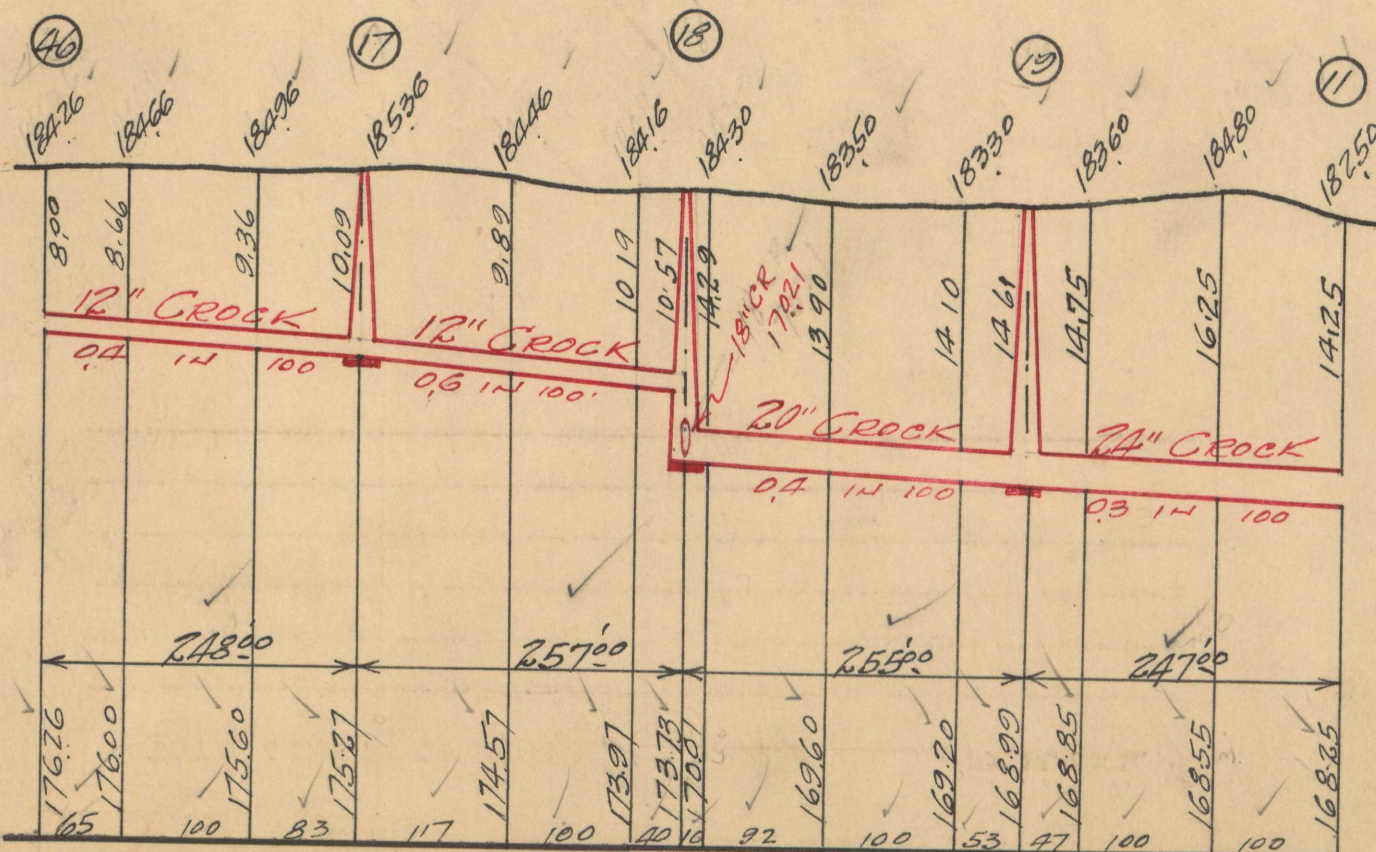 46 17 18 19 11
184.26 184.66 184.96 185.36 184.46 184.16 184.30 183.50 183.30 183.60 184.80 182.50
8.00 8.66 9.36 10.09 9.89 10.19 10.57 14.29 13.90 14.10 14.61 14.75 16.25 14.25
18" CR
170.21
12" CROCK 12" CROCK 20" CROCK 24" CROCK
0.4 IN 100 0.6 IN 100' 0.4 IN 100 0.3 IN 100
248'00 257'00 255'00 247'00
176.26 176.00 175.60 175.27 174.57 173.97 173.73 170.01 169.60 169.20 168.99 168.85 168.55 168.25
65 100 83 117 100 40 10 92 100 53 47 100 100